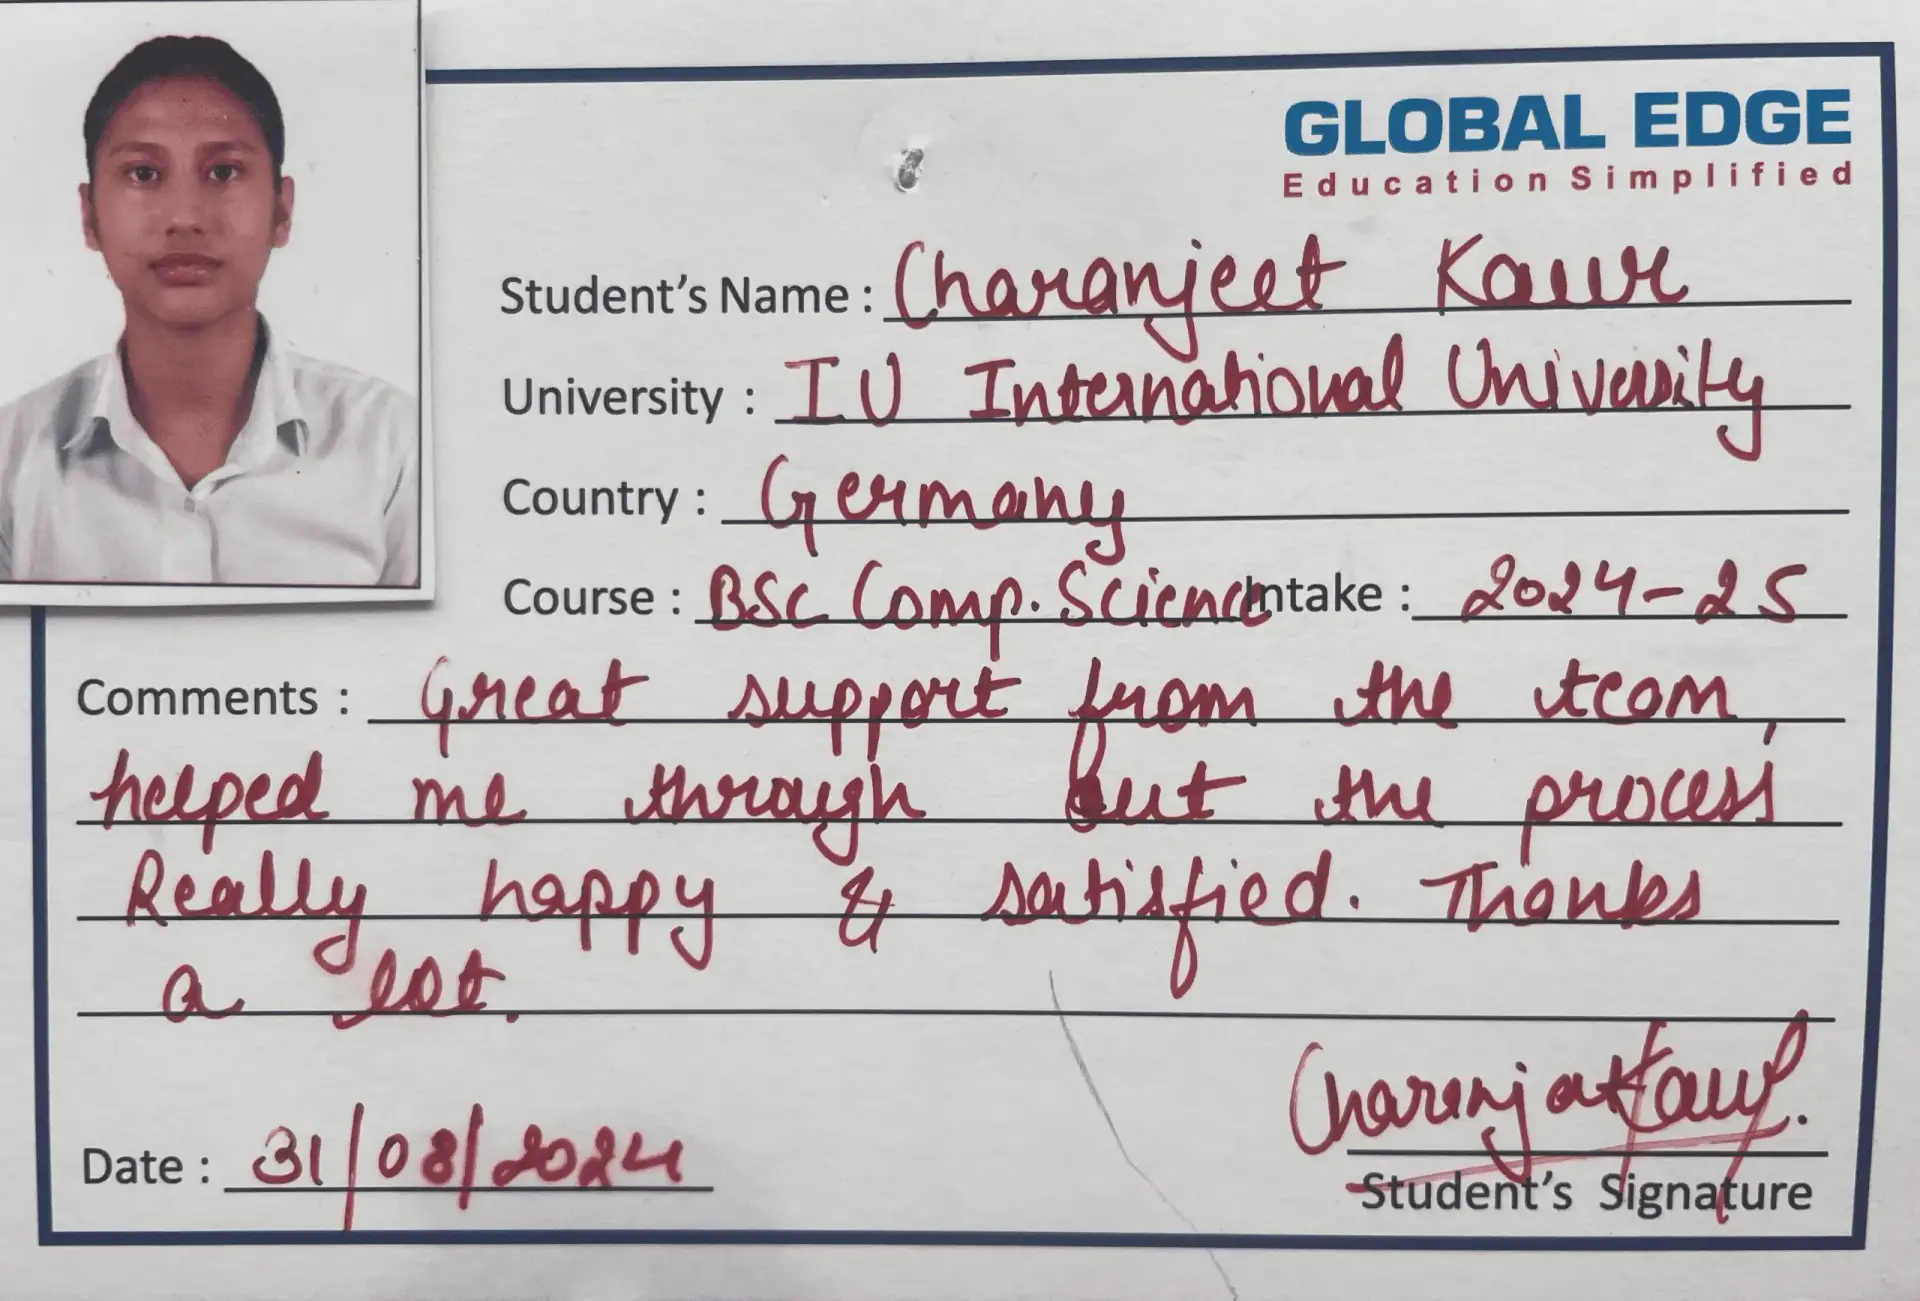 GLOBAL EDGE
Education Simplified
Student's Name : Charanjeet Kaur
University : IU International University
Country : Germany
Course : BSc Comp. Science Intake : 2024-25
Comments : Great support from the team,
helped me through out the process
Really happy & satisfied. Thanks
a lot.
Charanjeet Kaur.
Date : 31/08/2024
Student's Signature